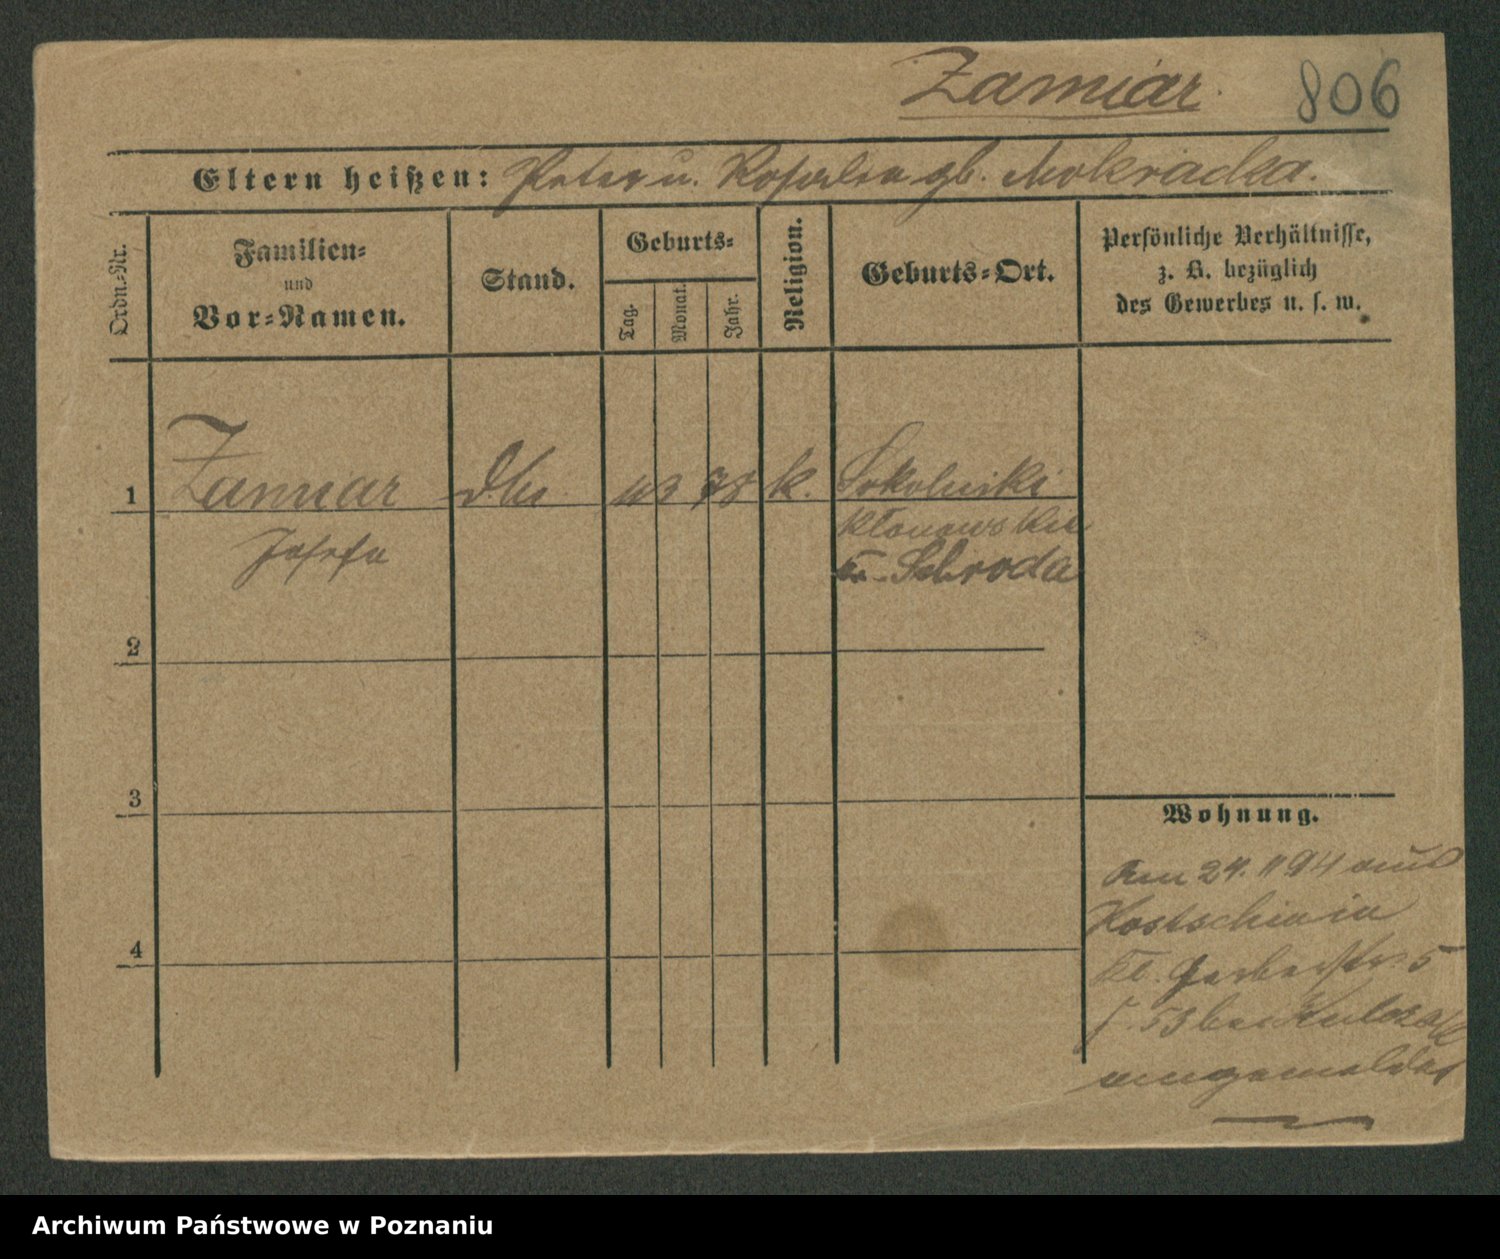 Zamiar.
806
Eltern heißen: Peter u. Rosalea gb. Mokracka.
Ordn.-Nr.
Familien-
und
Vor-Namen.
Stand.
Geburts-
Tag.
Monat.
Jahr.
Religion.
Geburts-Ort.
Persönliche Verhältnisse,
z. B. bezüglich
des Gewerbes u. s. w.
1
Zamiar
78
k.
Sokolniki
Josefa
Kr. Schroda
2
3
4
Wohnung.
24. 11 94 aus
Kostschin in
Kl. Gerberstr. 5
angemeldet
Archiwum Państwowe w Poznaniu